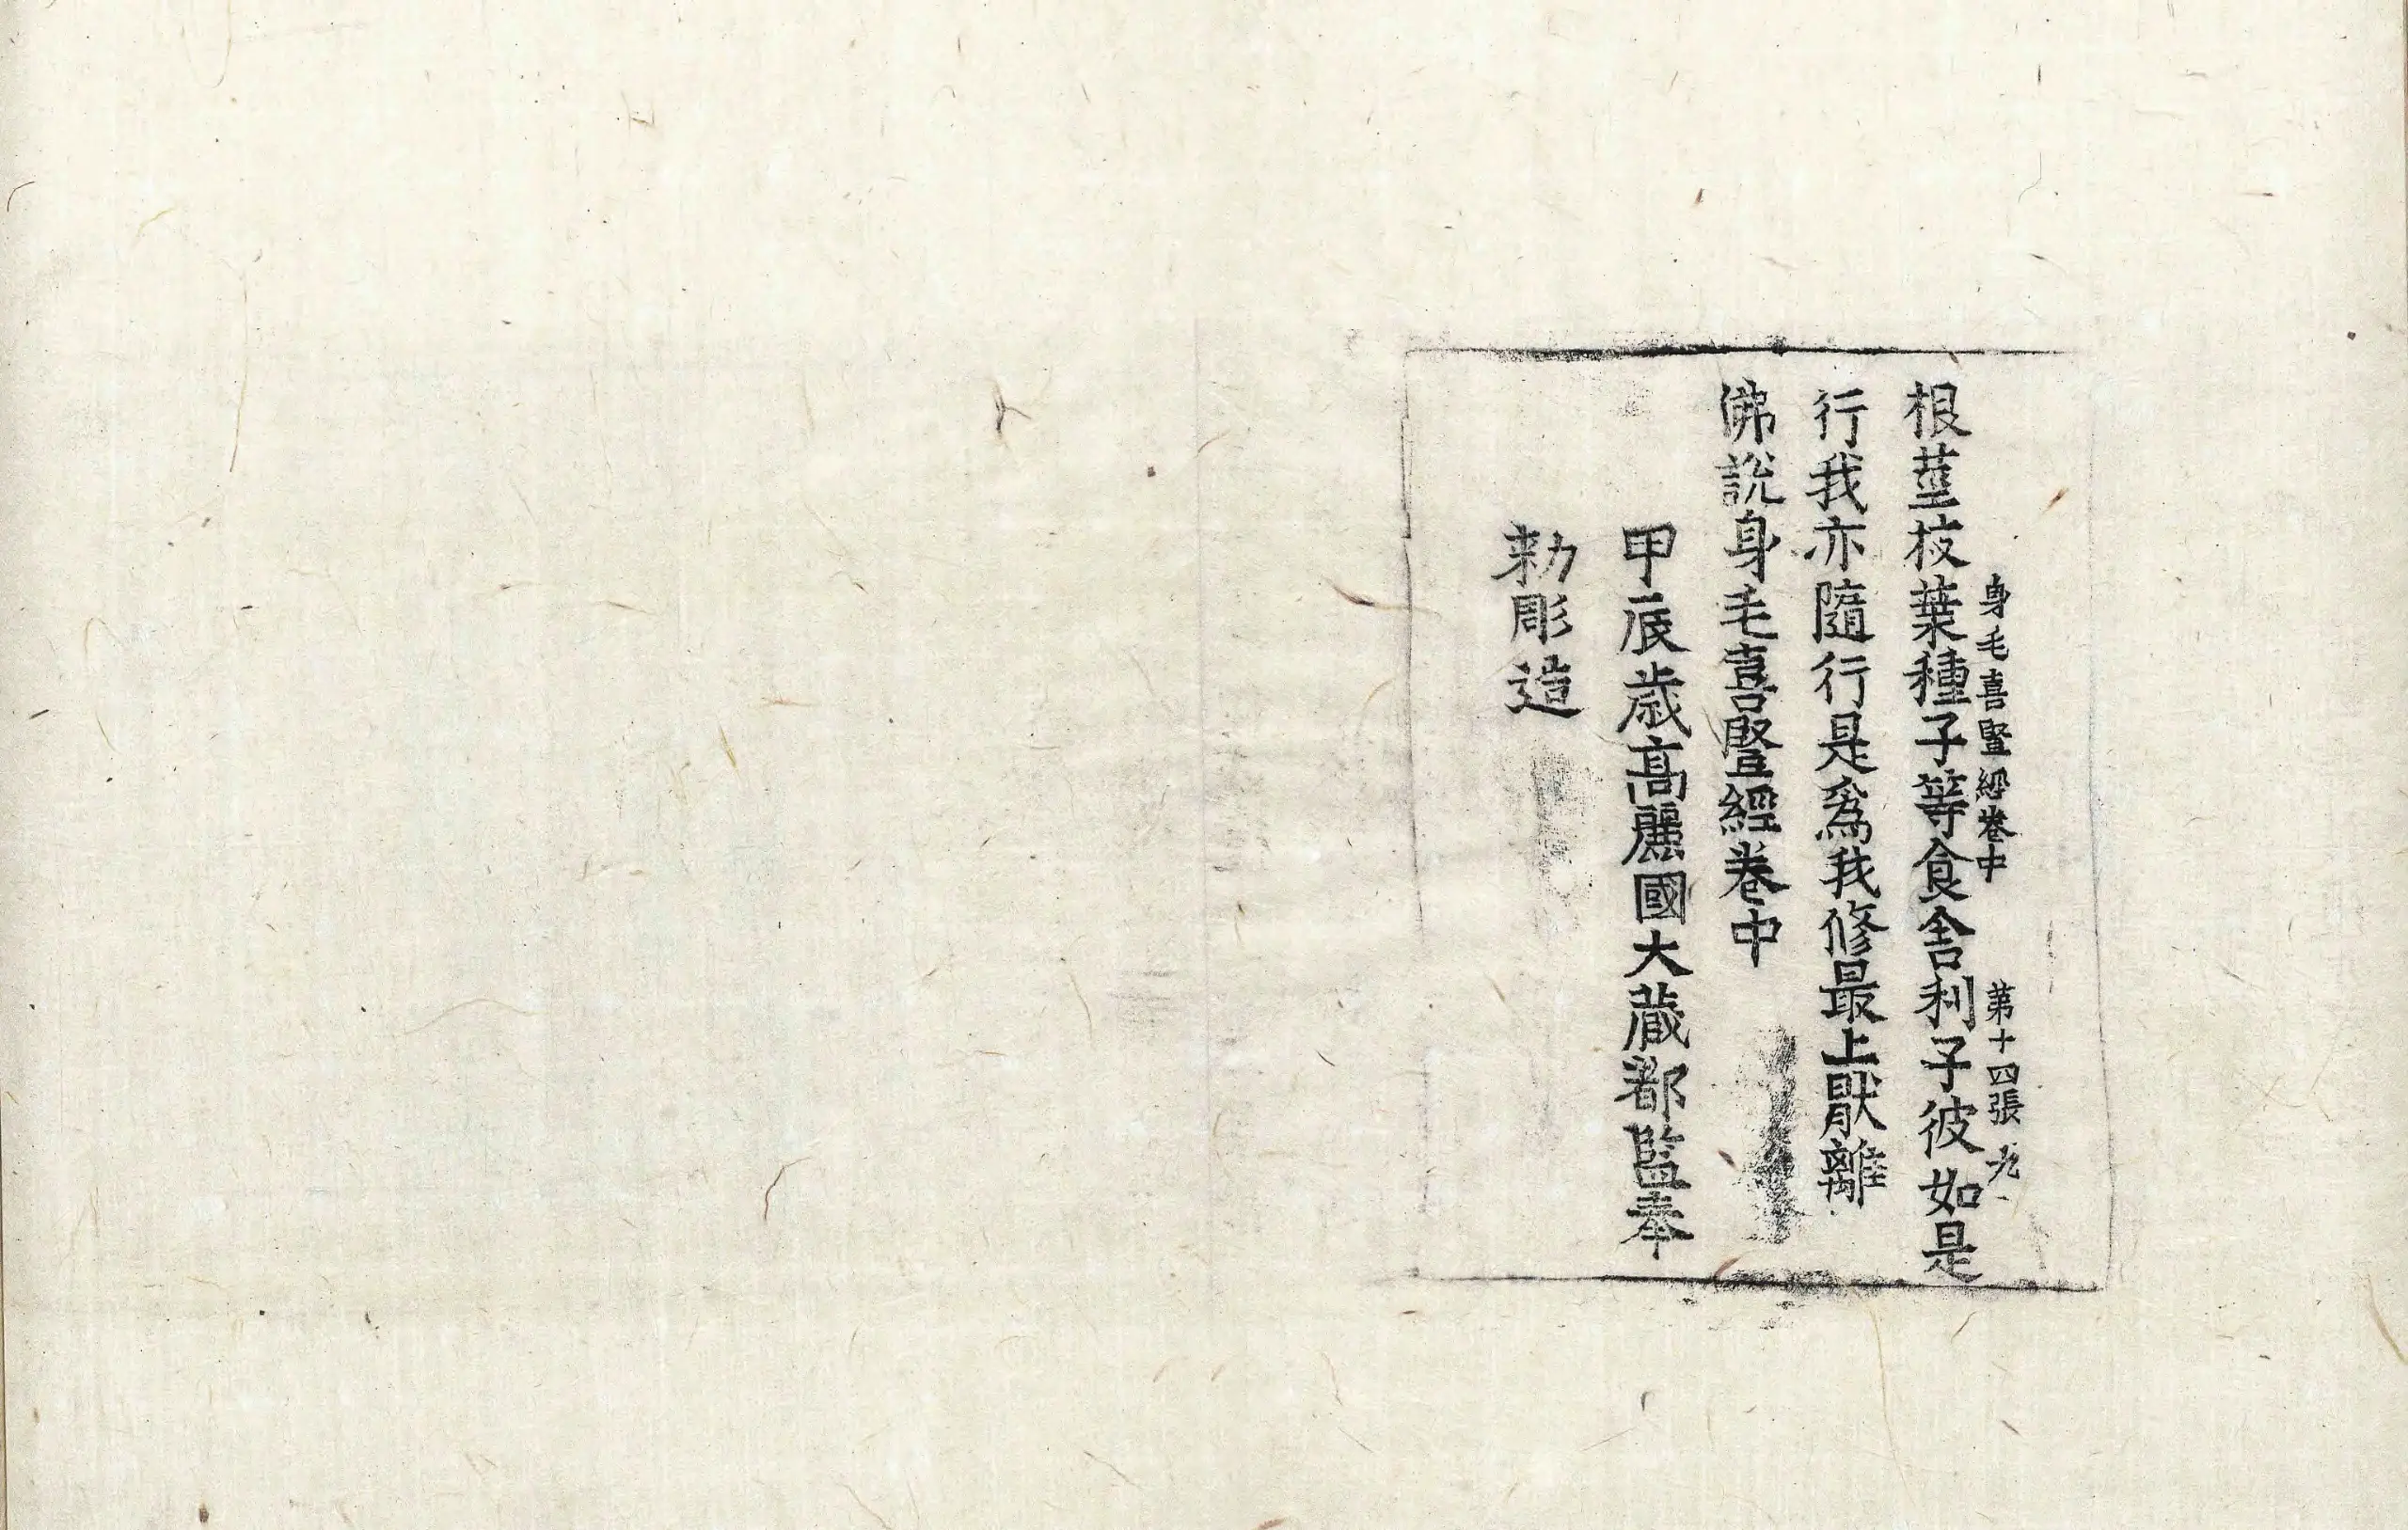 身毛喜竪經卷中 第十四張
根莖枝葉種子等食舍利子彼如是
行我亦隨行是爲我修最上猒離
佛說身毛喜竪經卷中
甲辰歲高麗國大藏都監奉
勅彫造